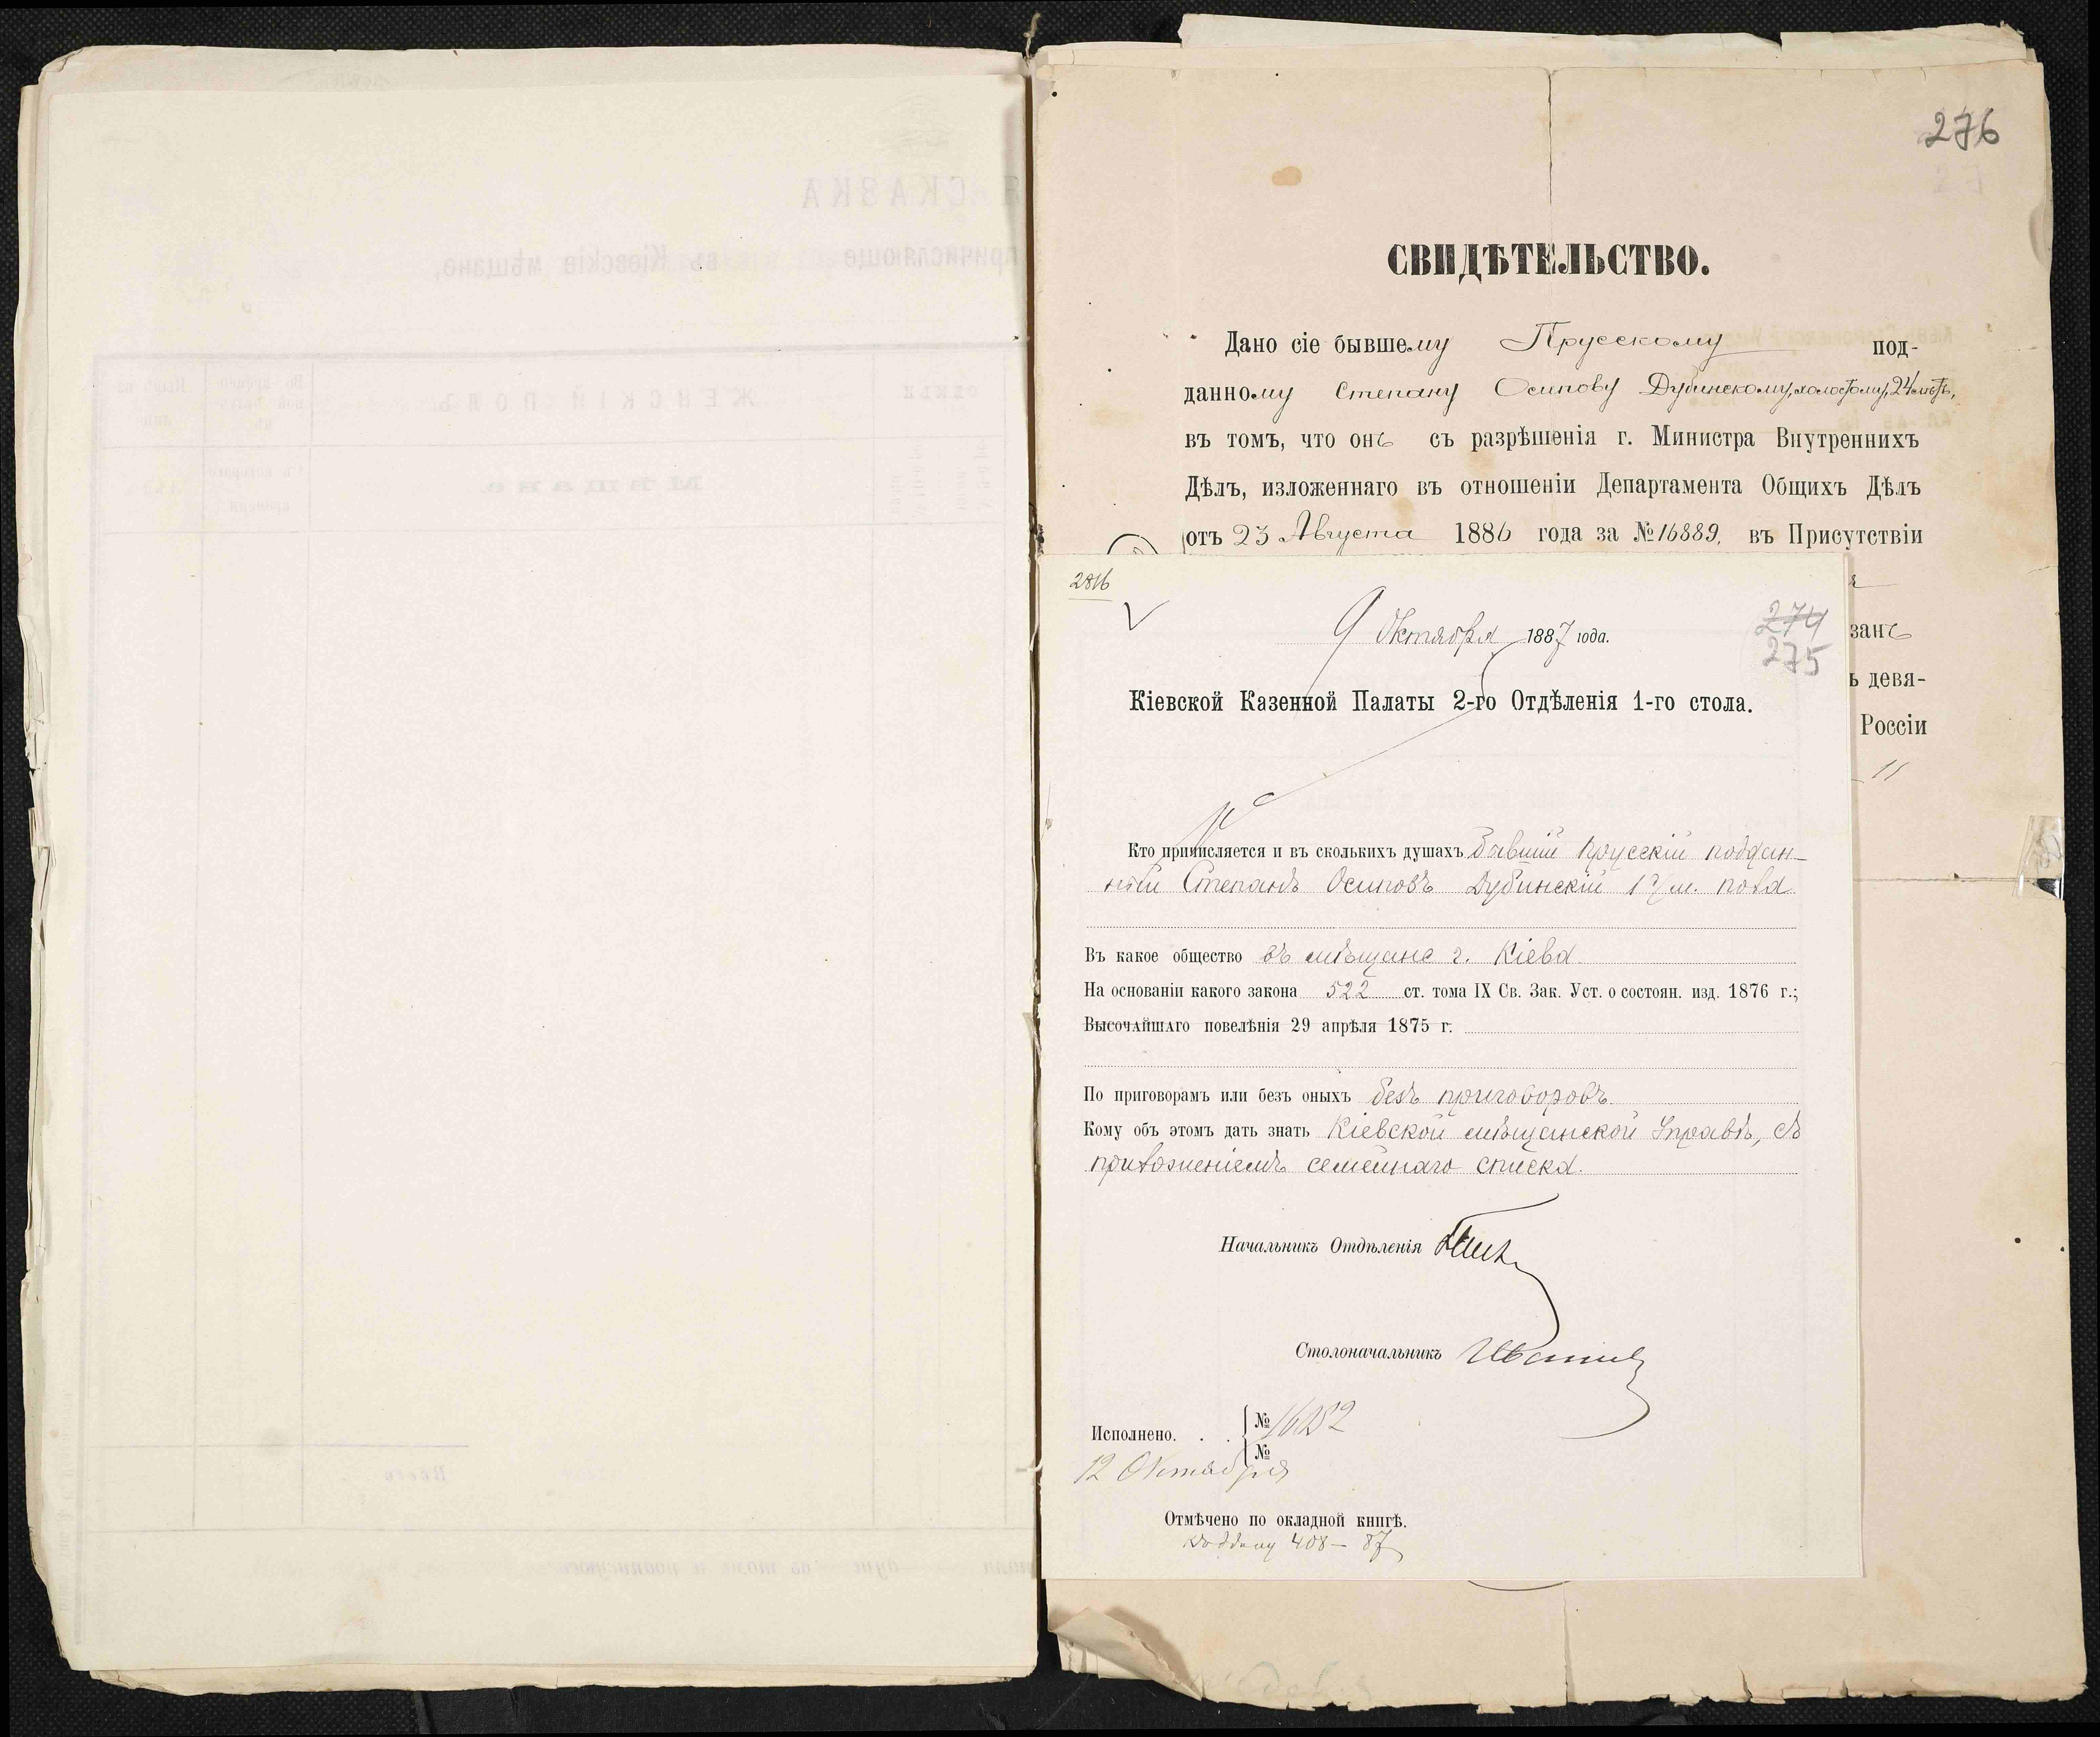 276
СВИДѢТЕЛЬСТВО.
Дано сіе бывшему Прусскому под-
данному Степану Осипову Дубинскому, холостому, 24 лѣтъ,
въ томъ, что онъ съ разрѣшенія г. Министра Внутреннихъ
Дѣлъ, изложеннаго въ отношеніи Департамента Общихъ Дѣлъ
отъ 23 Августа 1886 года за № 16889, въ Присутствіи
занъ
ь девя-
Россіи
11
2816
274
275
9 Октября 1887 года.
Кіевской Казенной Палаты 2-го Отдѣленія 1-го стола.
Кто причисляется и въ сколькихъ душахъ Бывшій прусскій поддан-
ный Степанъ Осиповъ Дубинскій 1 д. м. пола
Въ какое общество въ мѣщане г. Кіева
На основаніи какого закона 522 ст. тома IX Св. Зак. Уст. о состоян. изд. 1876 г.;
Высочайшаго повелѣнія 29 апрѣля 1875 г.
По приговорамъ или безъ оныхъ безъ приговоровъ.
Кому объ этомъ дать знать Кіевской мѣщанской Управѣ, съ
приложеніемъ семейнаго списка.
Начальникъ Отдѣленія
Столоначальникъ
Исполнено. . . № 16282
№
12 Октября
Отмѣчено по окладной книгѣ.
408 — 87
СКАЗКА
причисляюще въ Кіевскіе мѣщане,
ЖЕНСКІЙ ПОЛЪ
Мѣщане
Всего